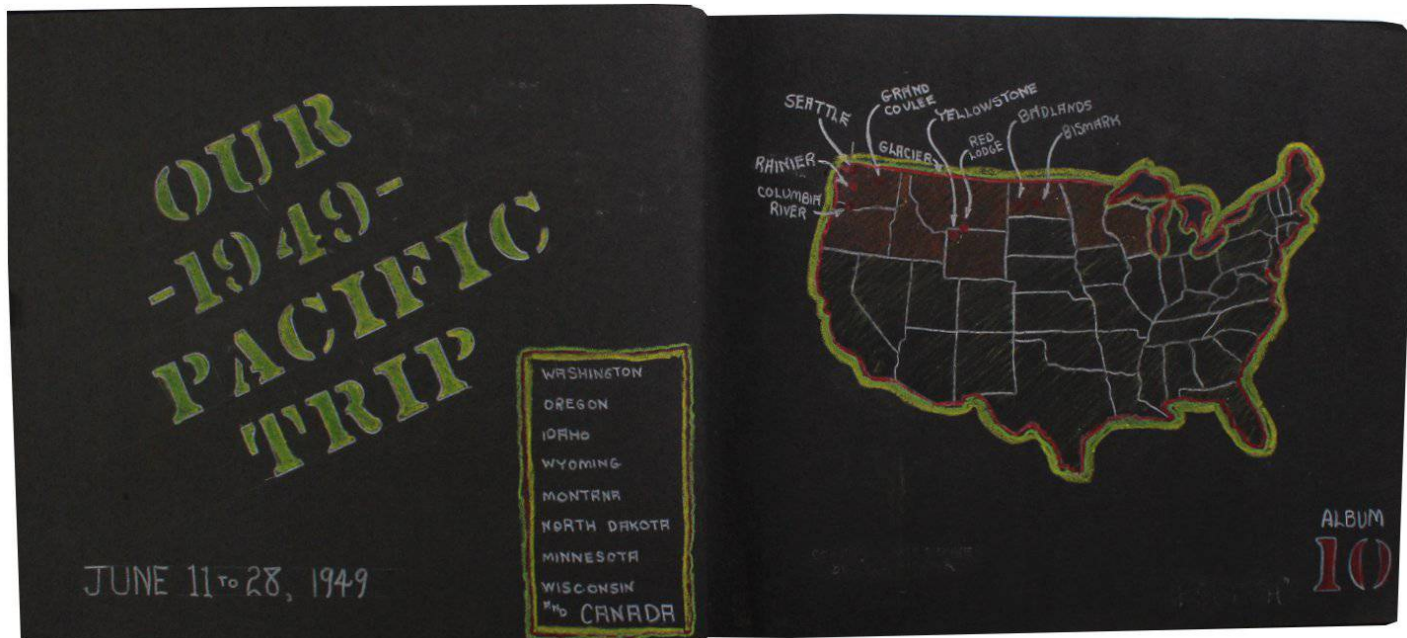 OUR
-1949-
PACIFIC
TRIP
JUNE 11 TO 28, 1949
WASHINGTON
OREGON
IDAHO
WYOMING
MONTANA
NORTH DAKOTA
MINNESOTA
WISCONSIN
AND CANADA
SEATTLE
GRAND
COULEE
YELLOWSTONE
BADLANDS
BISMARK
RED
LODGE
GLACIER
RAINIER
COLUMBIA
RIVER
ALBUM
10